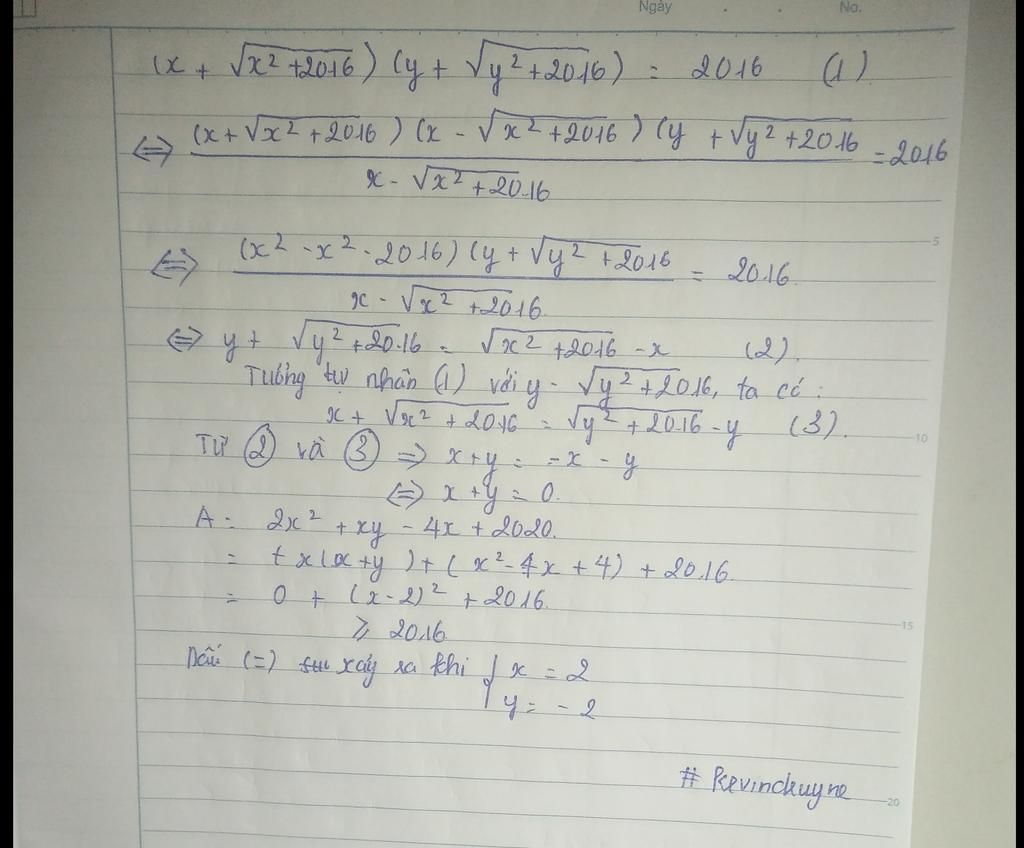 Ngày . . No.
(x + √(x² + 2016)) (y + √(y² + 2016)) = 2016 (1)
⇔ (x + √(x² + 2016)) (x - √(x² + 2016)) (y + √(y² + 2016) / x - √(x² + 2016) = 2016
⇔ (x² - x² - 2016) (y + √(y² + 2016) / x - √(x² + 2016) = 2016
5
⇔ y + √(y² + 2016) = √(x² + 2016) - x (2).
Tương tự nhân (1) với y - √(y² + 2016), ta có:
x + √(x² + 2016) = √(y² + 2016) - y (3).
10
Từ ② và ③ ⇒ x + y = - x - y
⇔ x + y = 0.
A = 2x² + xy - 4x + 2020.
= + x(x + y) + (x² - 4x + 4) + 2016.
= 0 + (x - 2)² + 2016.
15
⩾ 2016
Dấu (=) xảy ra khi { x = 2
y = - 2
# Kevinchuyne
20